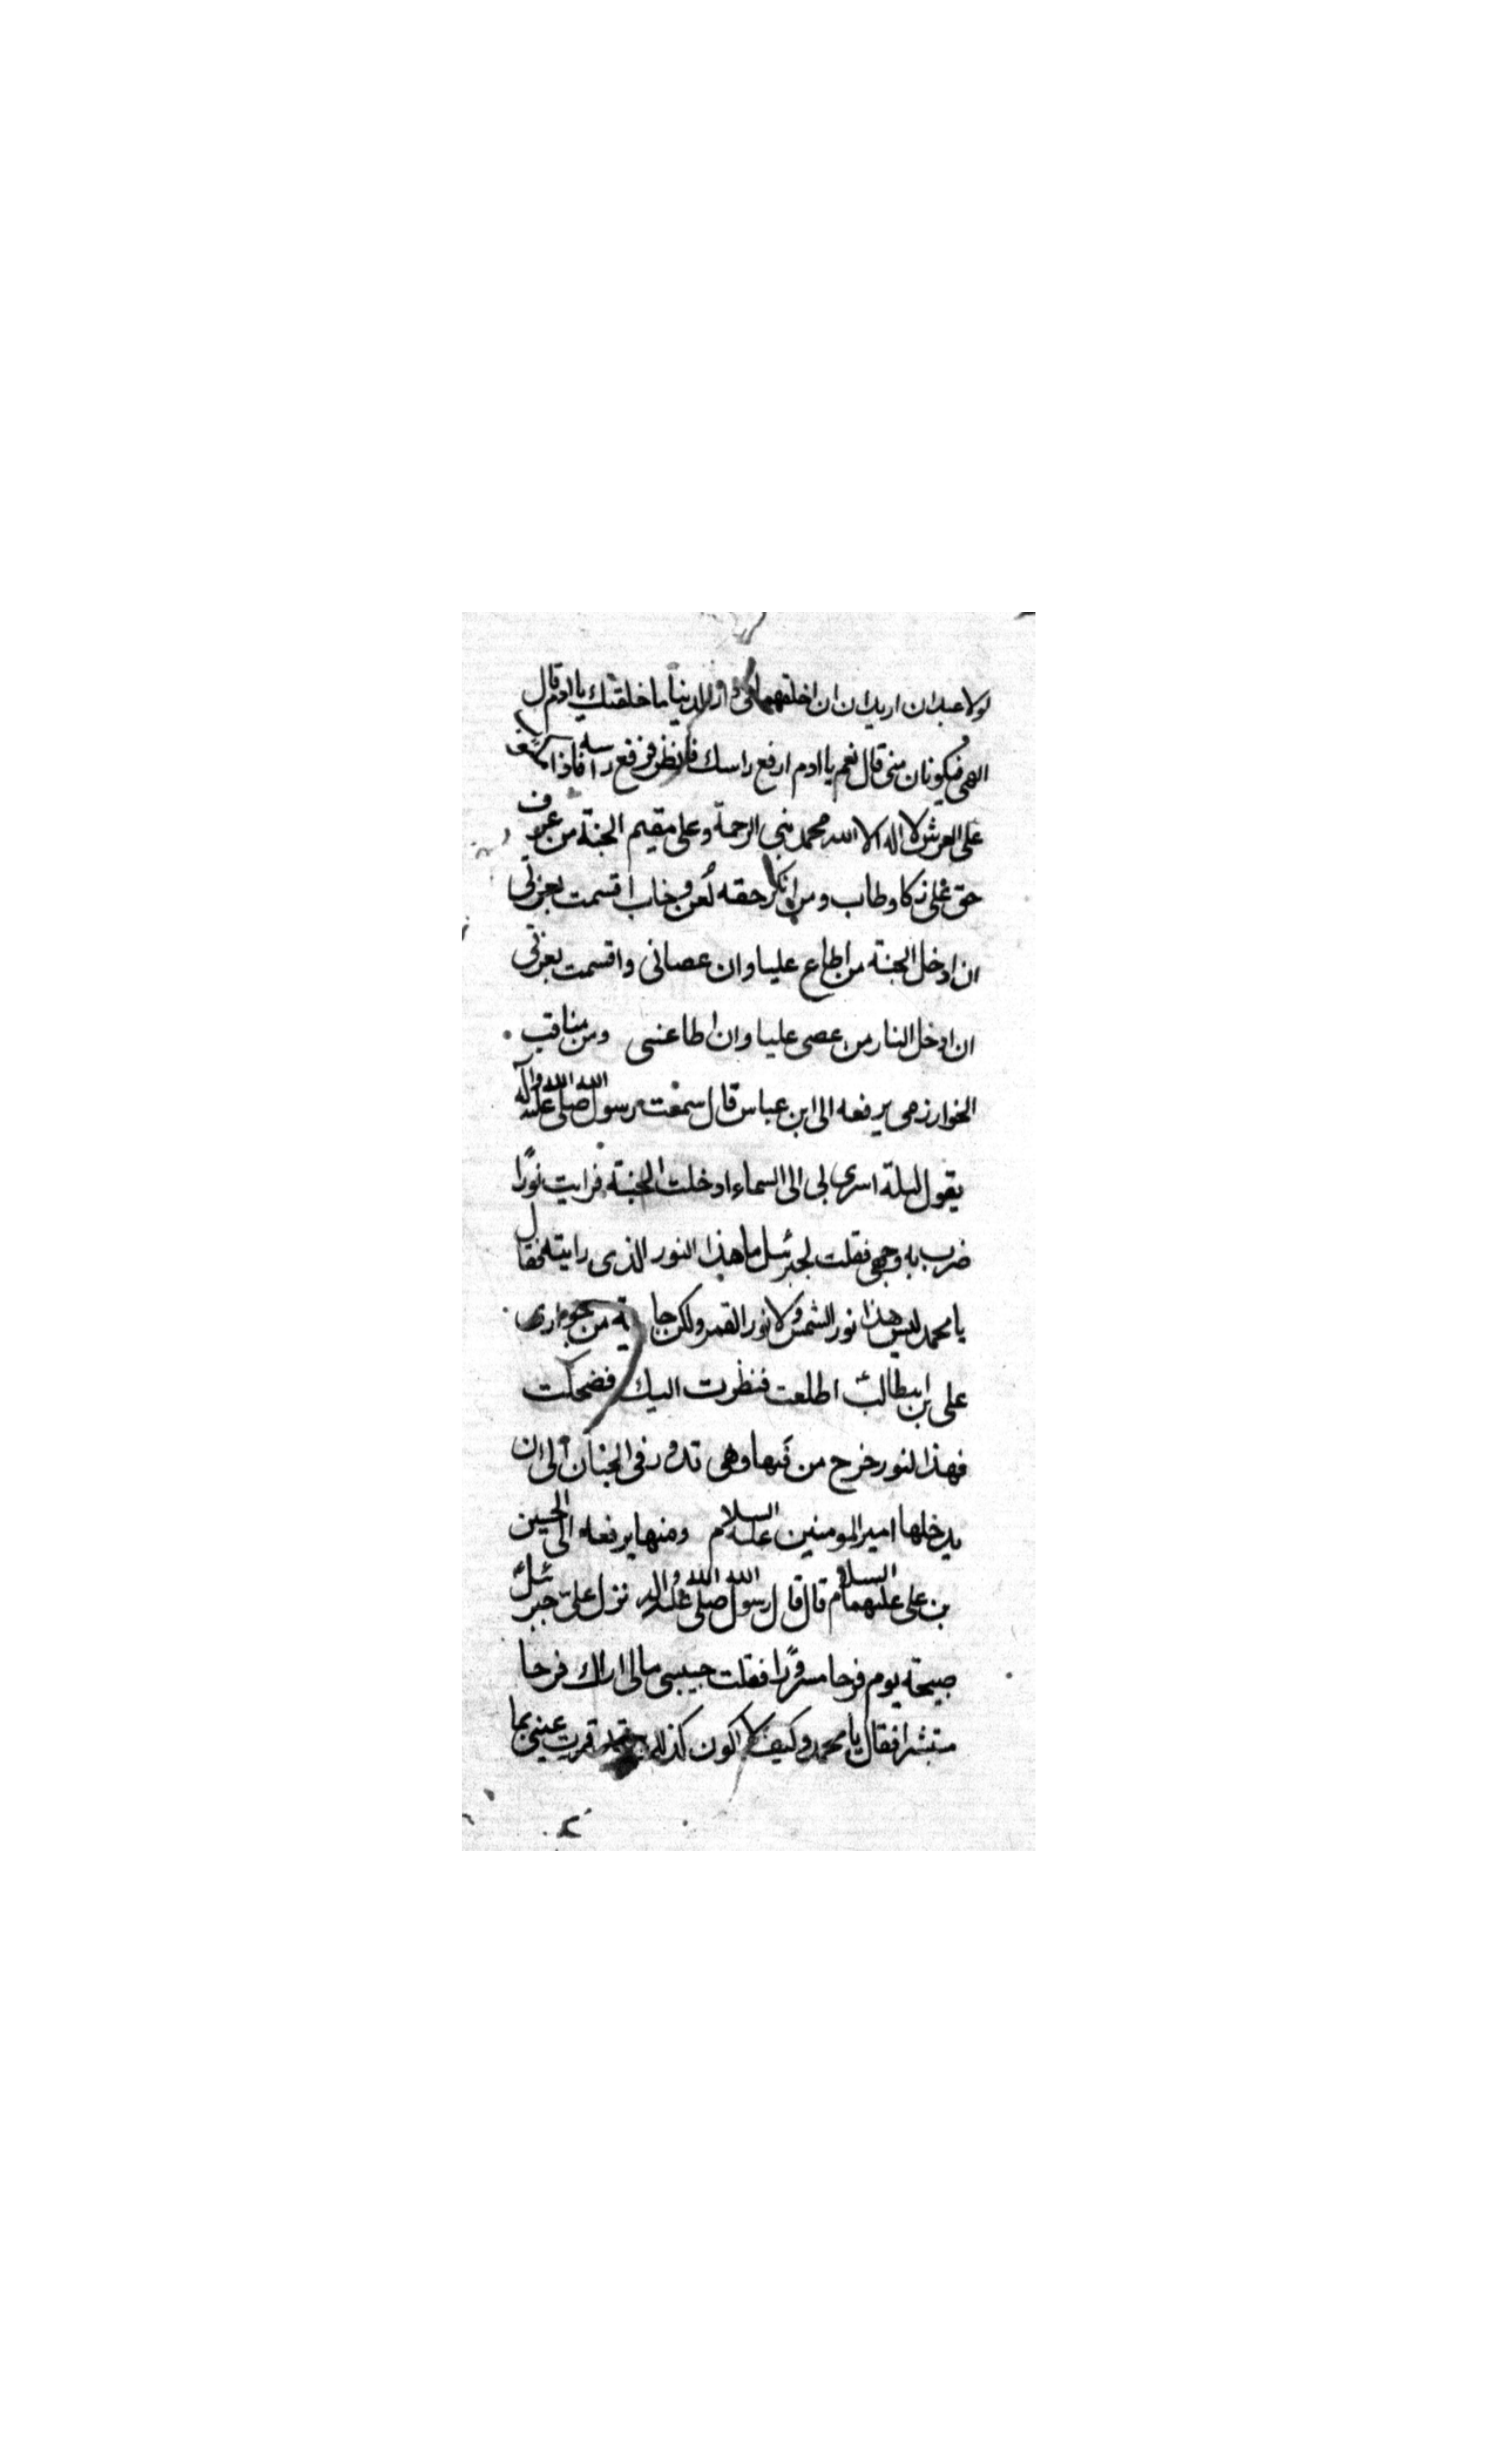 لولا عبدان اريد ان اخلقهما فى دار الدنيا ما خلقتك يا ادم قال
الهى فيكونان منى قال نعم يا ادم ارفع راسك فانظر فرفع راسه فاذا
على العرش لا اله الا الله محمد نبى الرحمة وعلى مقيم الجنة من عرف
حق على زكا وطاب ومن انكر حقه لعن وخاب اقسمت بعزتى
ان ادخل الجنة من اطاع عليا وان عصانى واقسمت بعزتى
ان ادخل النار من عصى عليا وان اطاعنى ومن مناقب
الخوارزمى يرفعه الى ابن عباس قال سمعت رسول الله صلى الله عليه وآله
يقول ليلة اسرى بى الى السماء ادخلت الجنة فرايت نورًا
ضرب به وجهى فقلت لجبرئيل ما هذا النور الذى رايته فقال
يا محمد ليس هذا نور الشمس ولا نور القمر ولكن جارية من جوارى
على بن ابيطالب اطلعت فنظرت اليك فضحكت
فهذا النور خرج من فيها وهى تدور فى الجنان الى ان
يدخلها امير المومنين عليه السلام ومنها يرفعه الى الحسين
بن على عليهما السلام قال قال رسول الله صلى الله عليه واله نزل علىّ جبرئيل
صبيحة يوم فرحا مسرورًا فقلت حبيبى مالى اراك فرحا
مستبشرا فقال يا محمد وكيف لا اكون كذلك وقد قرت عينى بما